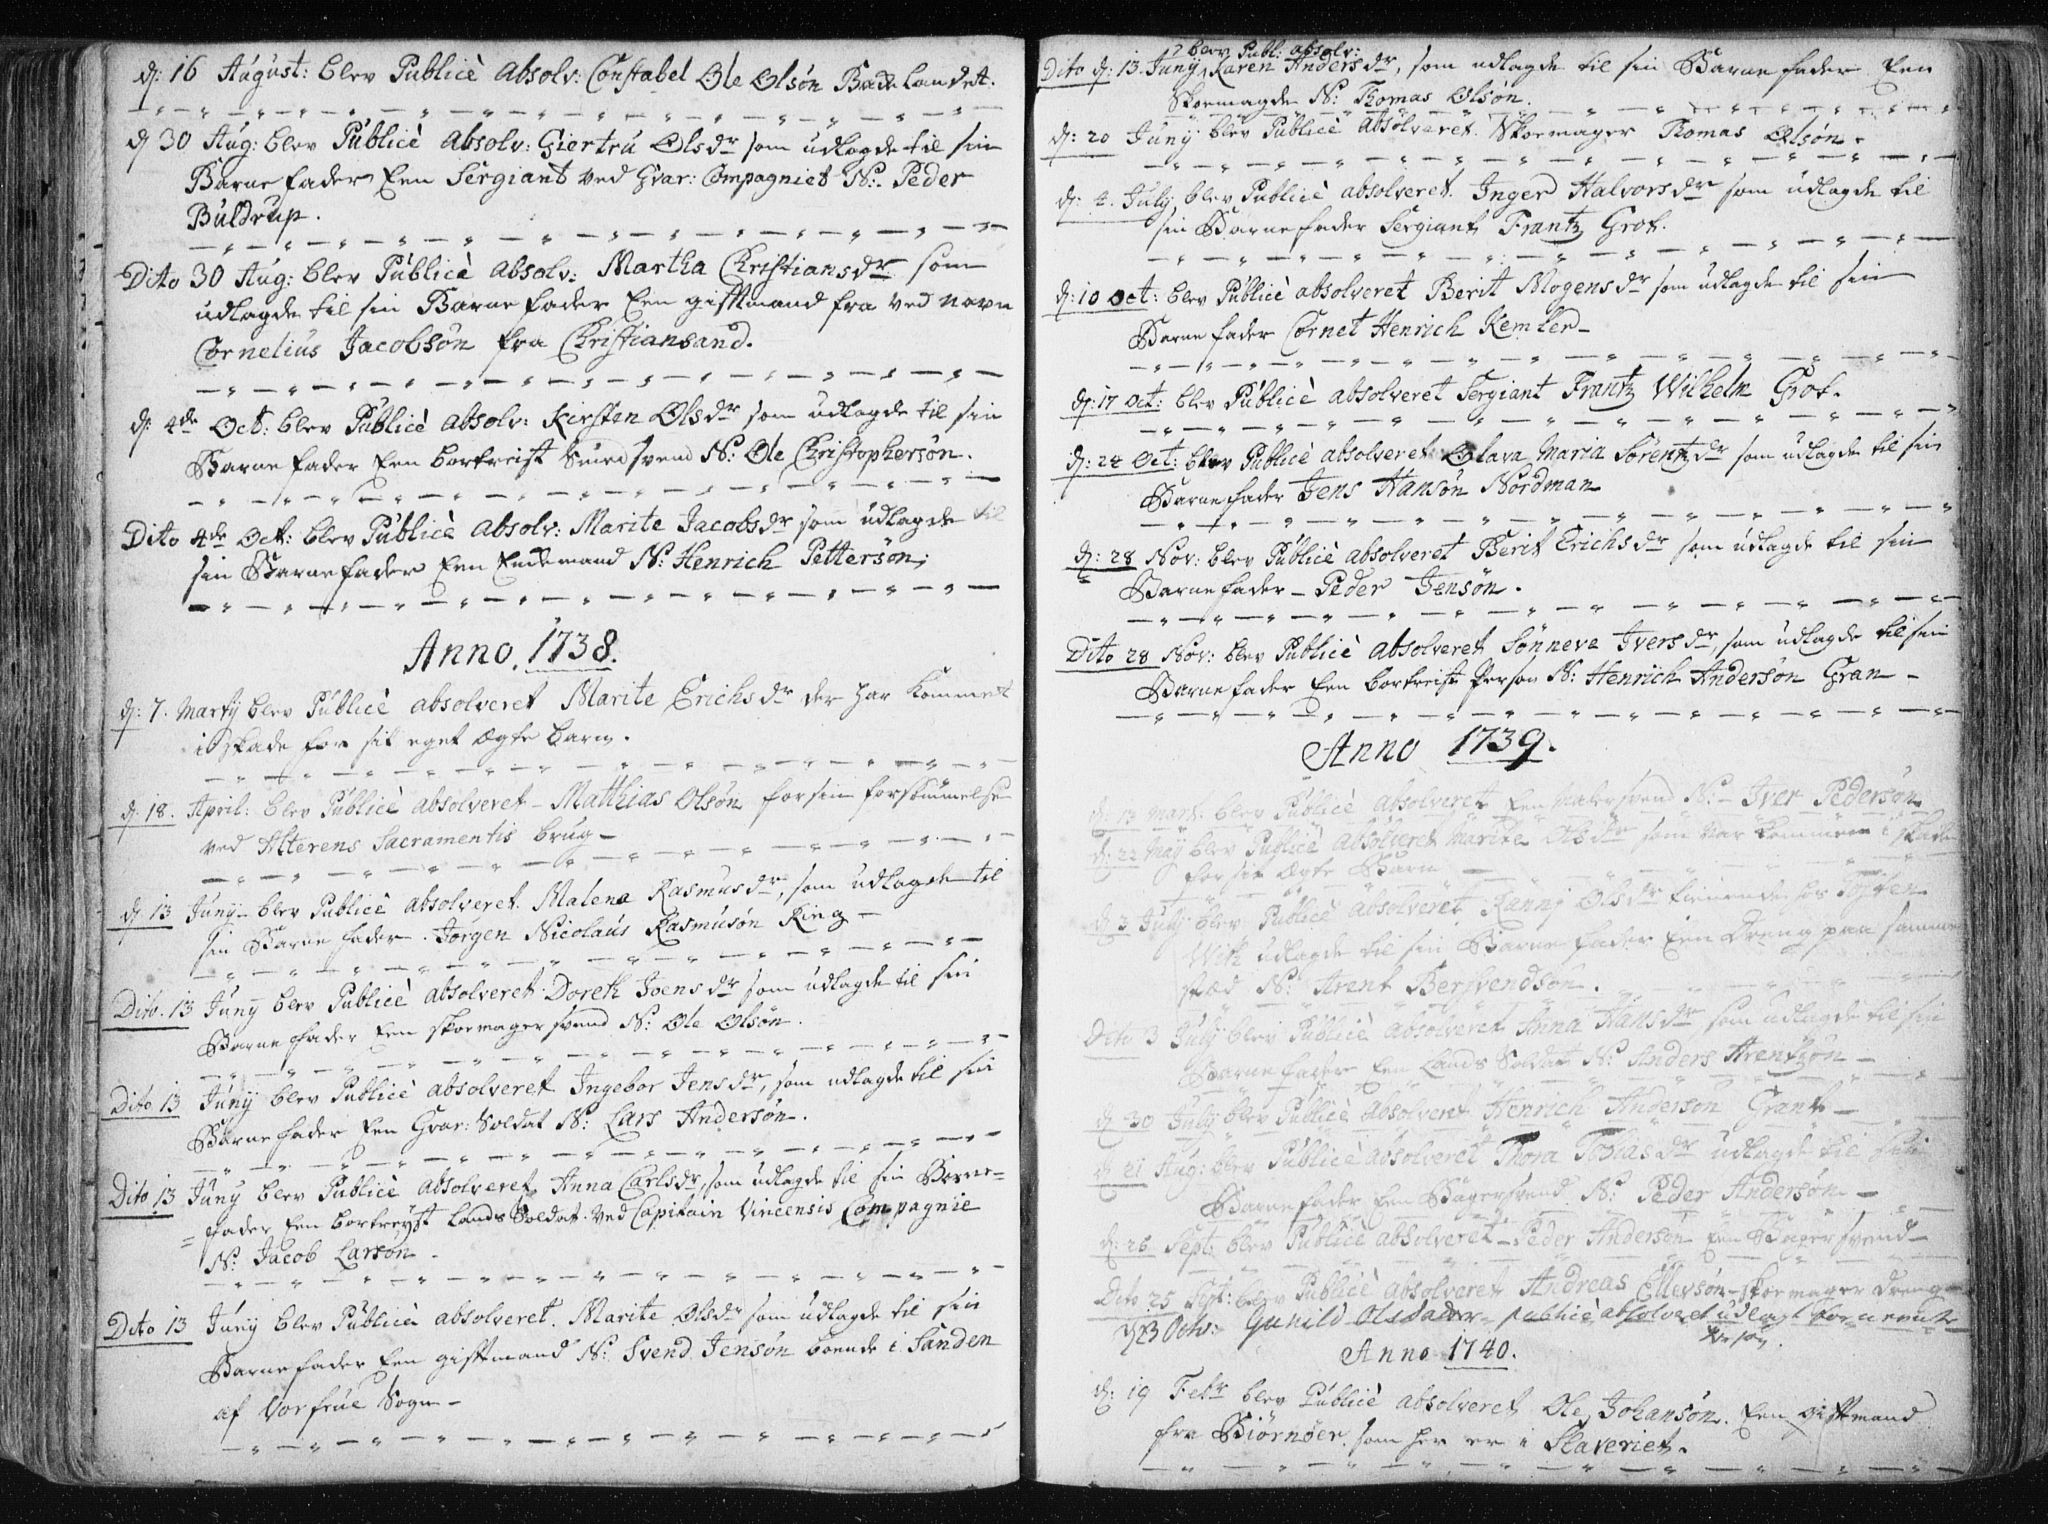 d: 16 August: blev Publicè absolv: Constabel Ole Olsøn Badelandet.
d 30 Aug: blev Publicè absolv: Giertru Olsdr som udlagde til sin
Barnefader Een Sergiant ved Gvar: Compagniet N: Peder
Buldrup.
Dito 30 Aug: blev Publicè absolv: Martha Christiansdr som
udlagde til sin Barnefader Een gifftmand fra ved navn
Cornelius Jacobsøn fra Christiansand.
d: 4de Oct: blev Publicè absolv: Kirsten Olsdr som udlagde til sin
Barnefader Een bortreist Smedsvend N: Ole Christophersøn.
Dito 4de Oct: blev Publicè absolv: Marite Jacobsdr som udlagde til
sin Barnefader Een Enckemand N: Henrich Pettersøn;
Anno 1738.
d: 7. Martÿ blev Publicè absolveret Marite Erichsdr der har kommet
i skade for sit eget Ægte barn.
d: 18. April: blev Publicè absolveret Matthias Olsøn for sin forsømmelse
ved Alterens Sacramentis brug
d. 13 Junÿ blev Publicè absolveret Malena Rasmusdr, som udlagde til
sin Barnefader. Jørgen Nicolaus Rasmusøn Ring
Dito. 13 Junÿ blev Publicè absolveret Doreth Joensdr som udlagde til sin
Barnefader Een skoemagersvend N: Ole Olsøn.
Dito 13 Junÿ blev Publicè absolveret Ingebor Jensdr, som udlagde til sin
Barnefader Een Gvar: Soldat N: Lars Andersøn.
Dito 13 Junÿ blev Publicè absolveret Anna Carlsdr, som udlagde til sin Barne=
=fader Een bortreyst Lands Soldat ved Capitain Vincensis Compagnie
N: Jacob Larsøn.
Dito 13 Junÿ blev Publicè absolveret. Marite Olsdr som udlagde til sin
Barnefader Een gifftmand N: Svend Jensøn boende i Sanden
af Vorfrue Sogn
blev Publ: absolv:
Dito d: 13 Junÿ Karen Andersdr, som udlagde til sin Barnefader Een
Skoemager N: Thomas Olsøn.
d: 20 Junÿ blev Publicè absolveret Skoemager Thomas Olsøn.
d: 4. Julÿ blev Publicè absolveret. Inger Halvorsdr som udlagde til
sin Barnefader Sergiant Frantz Grot.
d: 10 Oct: blev Publicè absolveret Berit Mogensdr som udlagde til sin
Barnefader Cornet Henrich Kemler
d: 17 Oct: blev Publicè absolveret Sergiant Frantz Wilhelm Grot.
d: 24 Oct: blev Publicè absolveret Olava Maria Sørentzdr som udlagde til sin
Barnefader Jens Hansøn Nordman
d: 28 Nov: blev Publicè absolveret Berit Erichsdr som udlagde til sin
Barnefader Peder Jensøn.
Dito 28 Nov: blev Publicè absolveret Sønneva Iversdr, som udlagde til sin
Barnefader Een bortreist Person N: Henrich Andersøn Gran
Anno 1739.
d: 13 Mart: blev Publicè absolveret Een Malersvend N: Iver Pedersøn
d: 22 Maÿ blev Publicè absolveret Marite Olsdr som var kommen i skade
for sit Ægte Barn
d 3 Julÿ blev Publicè absolveret Ranni Olsdr tienende hos
With udlagde til sin Barnefader Een Dreng paa samme
stæd N: Arent Berssvendsøn.
Dito 3 Julÿ blev Publicè absolveret Anna Hansdr som udlagde til sin
Barnefader Een Lands Soldat N: Anders Arentzøn
d: 30 Julÿ blev Publicè absolveret Henrich Andersøn Grant
d 21 Aug: blev Publicè absolveret Thora Tobiasdr udlagde til sin
Barnefader Een Bagersvend N: Peder Andersøn
d: 26 Sept: blev Publicè absolveret Peder Andersøn Een Bagersvend
Dito 25 Sept: blev Publicè absolveret Andreas Ellevsøn skoemager dreng
d 23 Octr: Gunild Olsdaater publicè absolveret udlagt fornevnte
Person.
Anno 1740.
d: 19 Febr blev Publicè absolveret Ole Johansøn. Een gifftmand
fra Biørnøer som her er i Slaveriet.